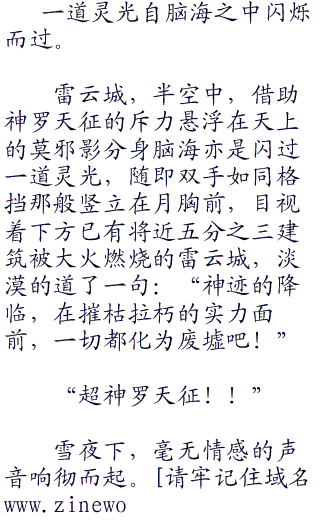 一道灵光自脑海之中闪烁
而过。
雷云城，半空中，借助
神罗天征的斥力悬浮在天上
的莫邪影分身脑海亦是闪过
一道灵光，随即双手如同格
挡那般竖立在月胸前，目视
着下方已有将近五分之三建
筑被大火燃烧的雷云城，淡
漠的道了一句：“神迹的降
临，在摧枯拉朽的实力面
前，一切都化为废墟吧！”
“超神罗天征！！”
雪夜下，毫无情感的声
音响彻而起。[请牢记住域名
www.zinewo